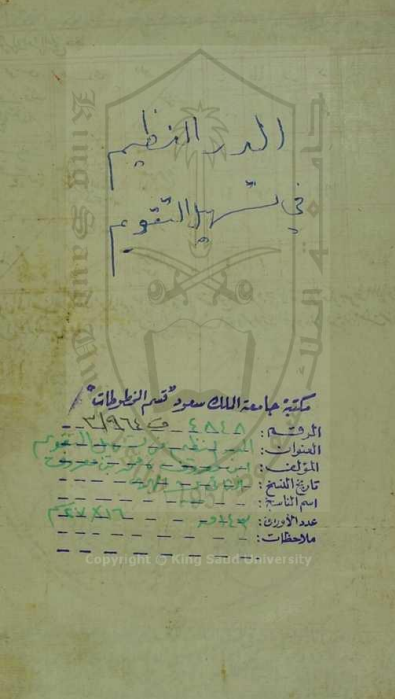 الدر النظيم
في تسهيل التقويم
مكتبة جامعة الملك سعود "قسم المخطوطات"
الرقم: ٤٨٤٨ ف ٣/٩٦٤
العنوان: الدر النظيم في تسهيل التقويم
المؤلف: ابن معروف
تاريخ النسخ:
اسم الناسخ:
عدد الأوراق:
ملاحظات:
Copyright © King Saud University
King Saud
جامعة الملك